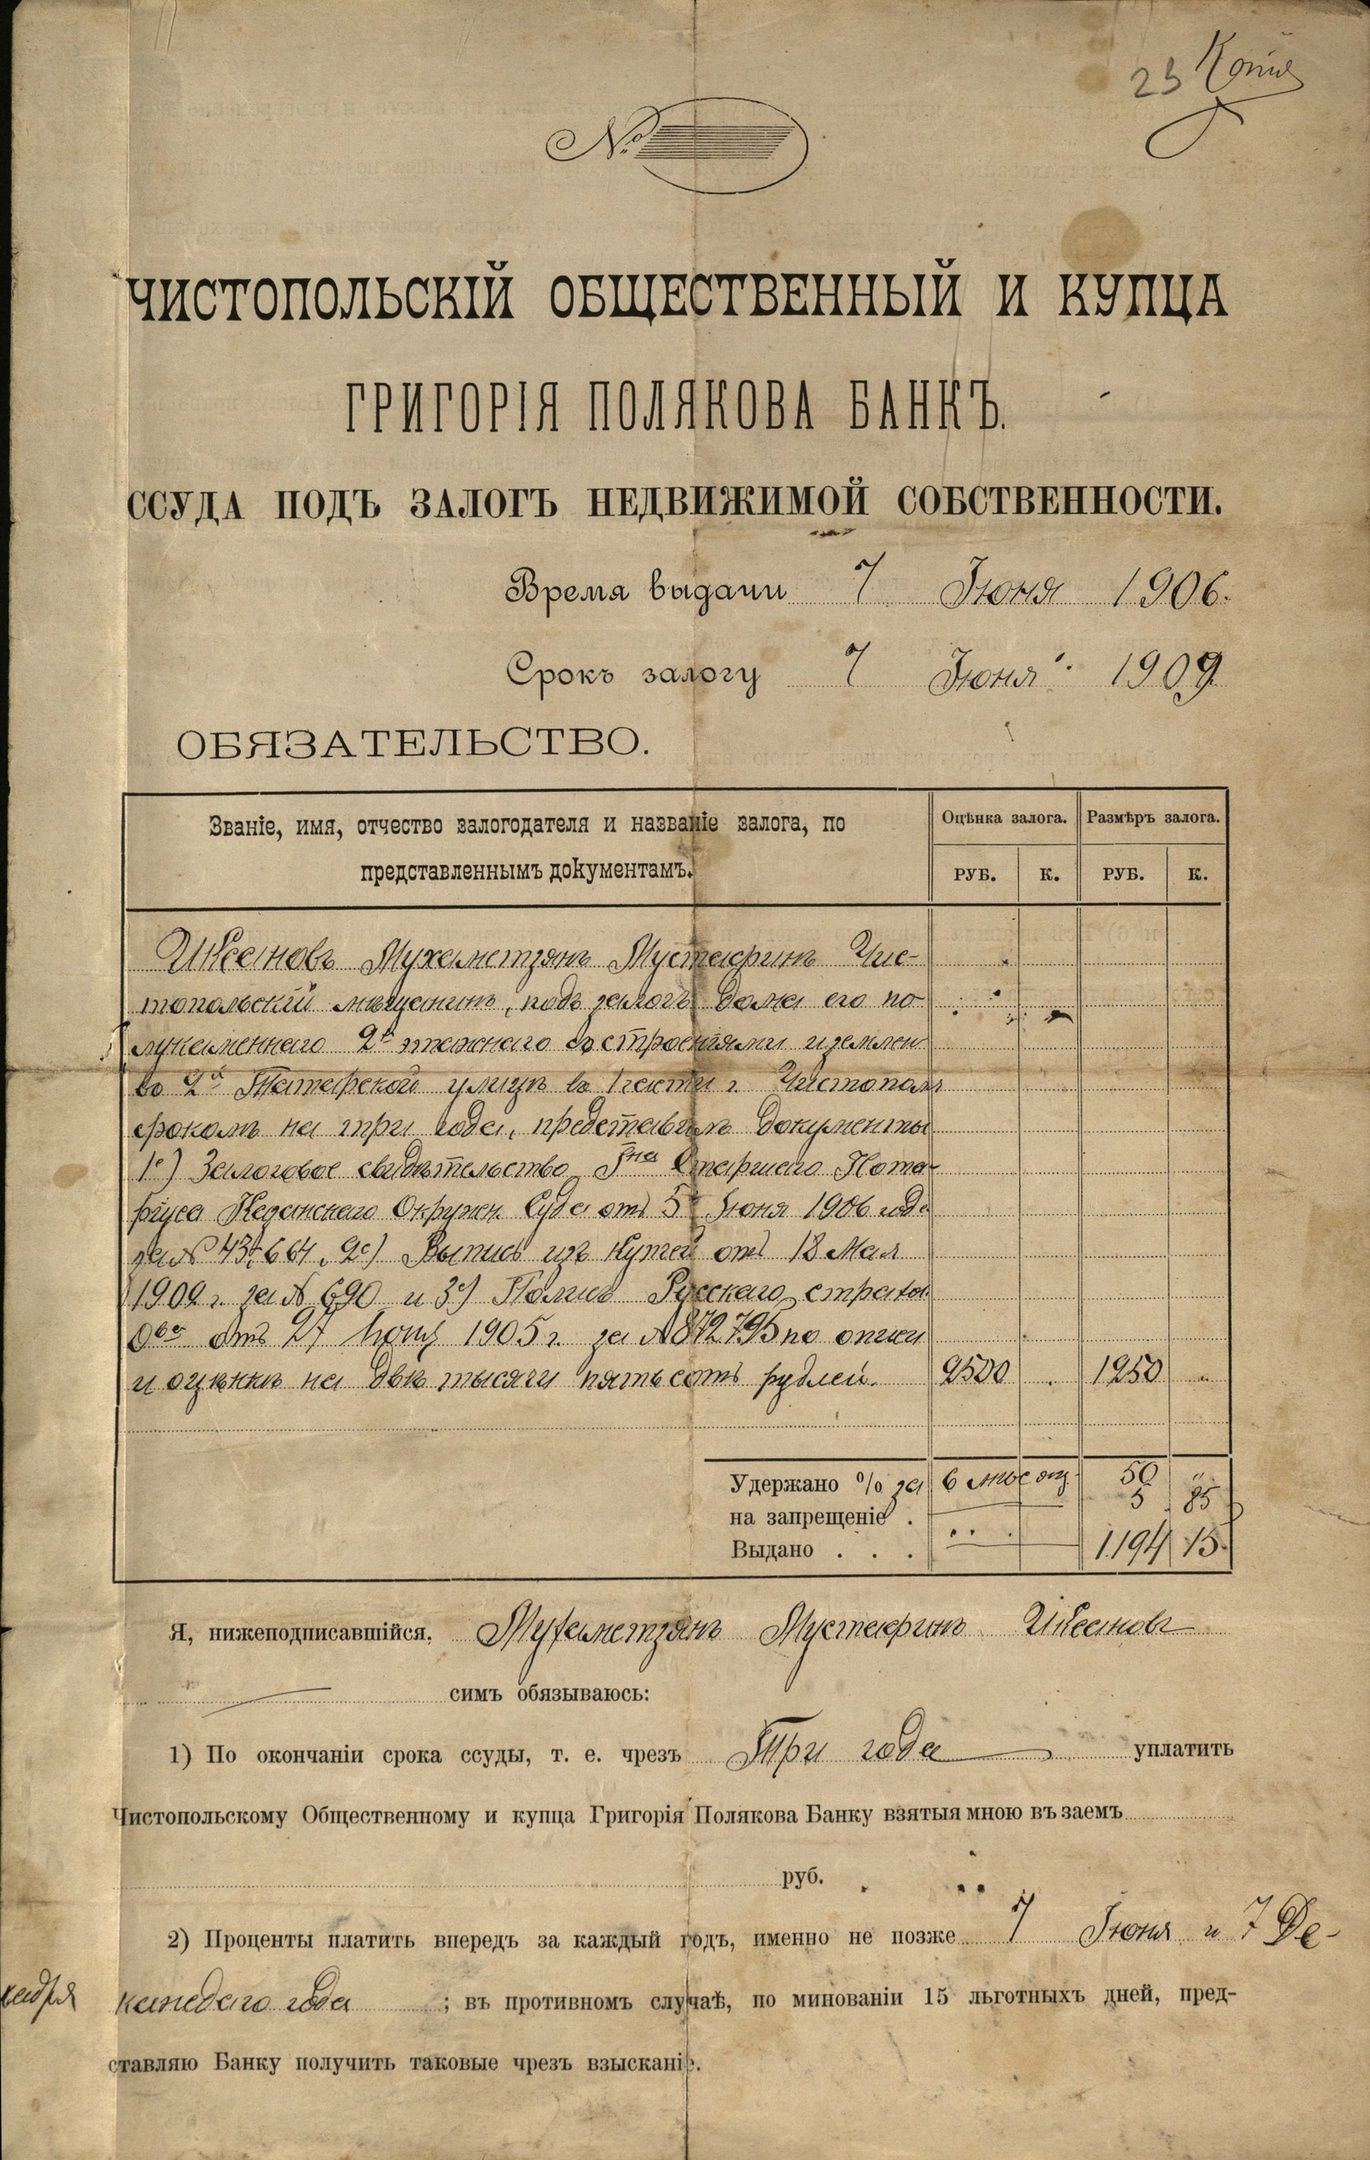 23 Копія
№
ЧИСТОПОЛЬСКІЙ ОБЩЕСТВЕННЫЙ И КУПЦА
ГРИГОРІЯ ПОЛЯКОВА БАНКЪ.
ССУДА ПОДЪ ЗАЛОГЪ НЕДВИЖИМОЙ СОБСТВЕННОСТИ.
Время выдачи 7 Іюня 1906.
Срокъ залогу 7 Іюня 1909
ОБЯЗАТЕЛЬСТВО.
Званіе, имя, отчество залогодателя и названіе залога, по
представленнымъ документамъ.
Оцѣнка залога. Размѣръ залога.
РУБ. К. РУБ. К.
Мухаметзянъ Мустафинъ Чис-
топольскій мѣщанинъ, подъ залогъ дома его по-
лукаменнаго 2хъ этажнаго со строеніями и землей
во 2й Татарской улицѣ въ 1 части г. Чистополя
срокомъ на три года, представилъ документы
1е) Залоговое свидѣтельство Гна Старшаго Нота-
ріуса Казанскаго Окружн. Суда отъ 5 Іюня 1906 года
за № 43-664, 2е) Выпись изъ купчей отъ 18 Мая
1902 г. за № 690 и 3е) Полисъ Русскаго страхов.
Отъ 27 1905 г. за № 872795 по описи
и оцѣнкѣ на двѣ тысячи пятьсотъ рублей. 2500 1250
Удержано % за 6 мѣсяц. 50 "
на запрещеніе . 5 85
Выдано . . . 1194 15
Я, нижеподписавшійся, Мухаметзянъ Мустафинъ
симъ обязываюсь:
1) По окончаніи срока ссуды, т. е. чрезъ Три года уплатить
Чистопольскому Общественному и купца Григорія Полякова Банку взятыя мною въ заемъ
руб.
2) Проценты платить впередъ за каждый годъ, именно не позже 7 Іюня и 7 Де-
кабря каждаго года ; въ противномъ случаѣ, по минованіи 15 льготныхъ дней, пред-
ставляю Банку получить таковые чрезъ взысканіе.